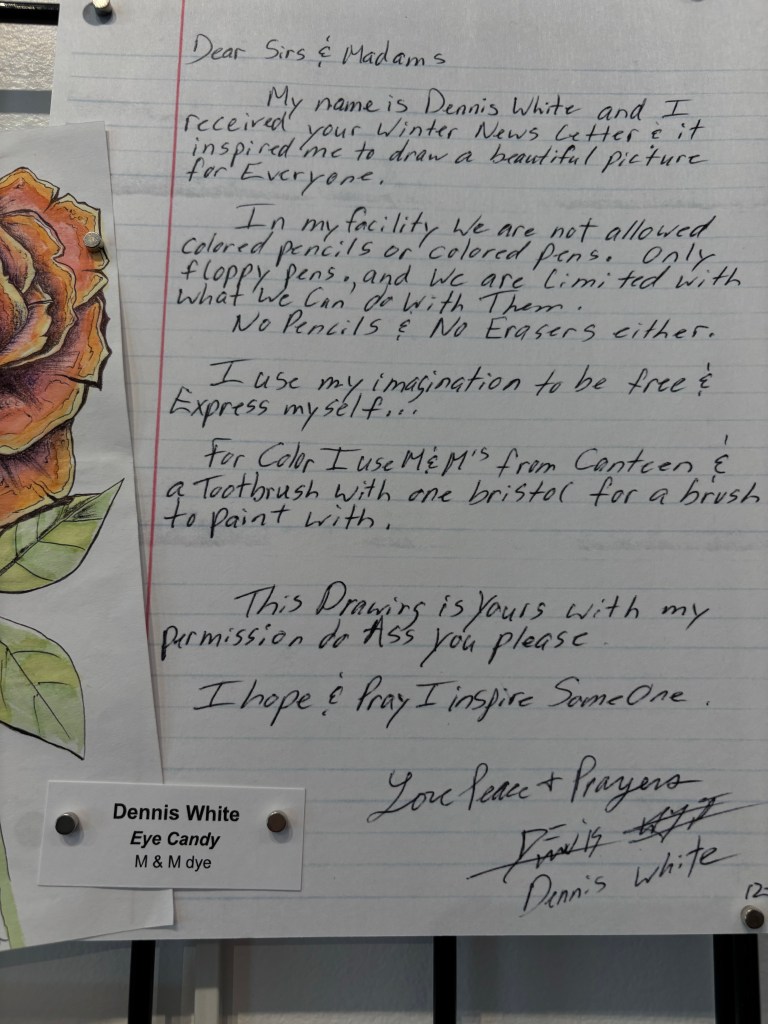 Dear Sirs & Madams
My name is Dennis White and I
received your Winter News Letter & it
inspired me to draw a beautiful picture
for Everyone.
In my facility We are not allowed
colored pencils or colored Pens. Only
floppy pens., and We are Limited with
what We Can do With Them.
No Pencils & No Erasers either.
I use my imagination to be free &
Express myself...
For Color I use M&M's from Canteen &
a Tootbrush with one bristol for a brush
to paint with.
This Drawing is Yours with my
permission do Ass you please.
I hope & Pray I inspire SomeOne.
Love Peace + Prayers
Dennis White
12-
Dennis White
Eye Candy
M & M dye